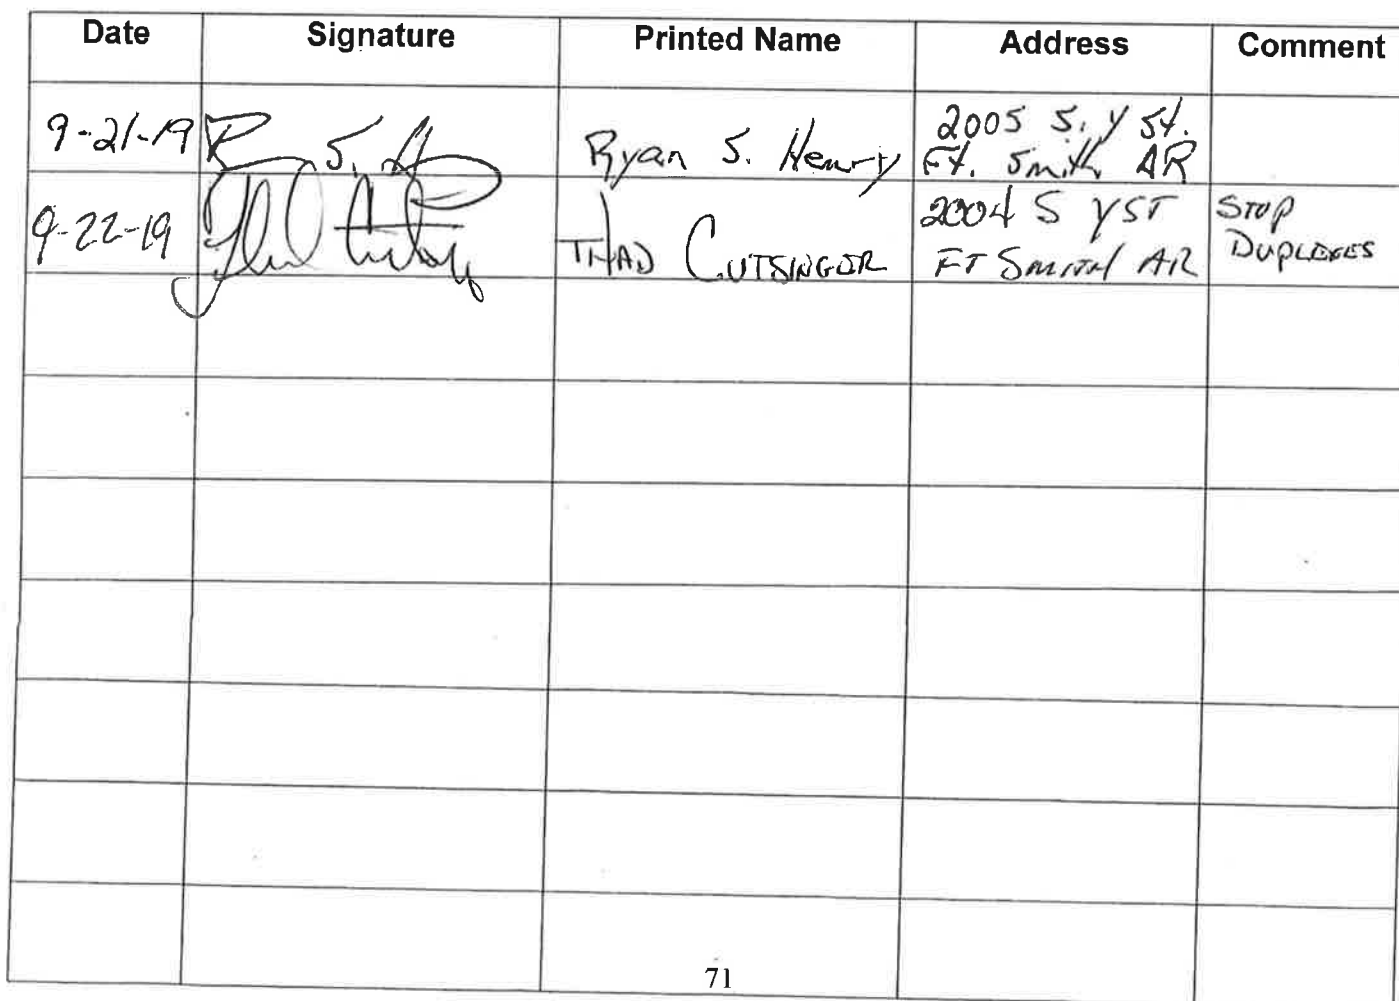 Date Signature Printed Name Address Comment
9-21-19 Ryan S. Henry 2005 S. Y St.
Ft. Smith AR
9-22-19 THAD CUTSINGER 2004 S Y ST
FT SMITH AR
STOP
DUPLEXES
71